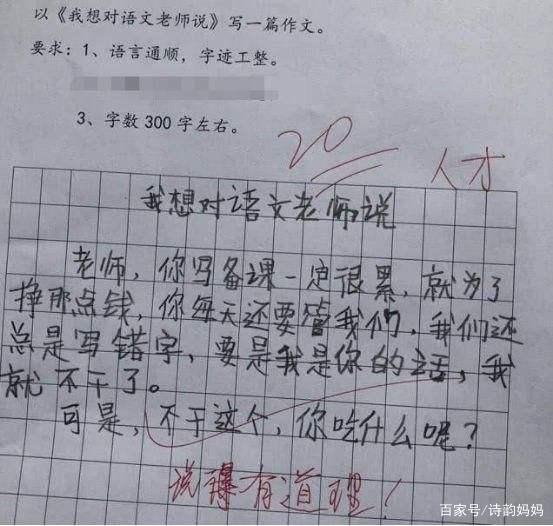 以《我想对语文老师说》写一篇作文。
要求：1、语言通顺，字迹工整。
3、字数300字左右。
20
人才
我想对语文老师说
老师，你写备课一定很累，就为了
挣那点钱，你每天还要管我们，我们还
总是写错字，要是我是你的话，我
就不干了。
可是，不干这个，你吃什么呢？
说得有道理！
百家号/诗韵妈妈